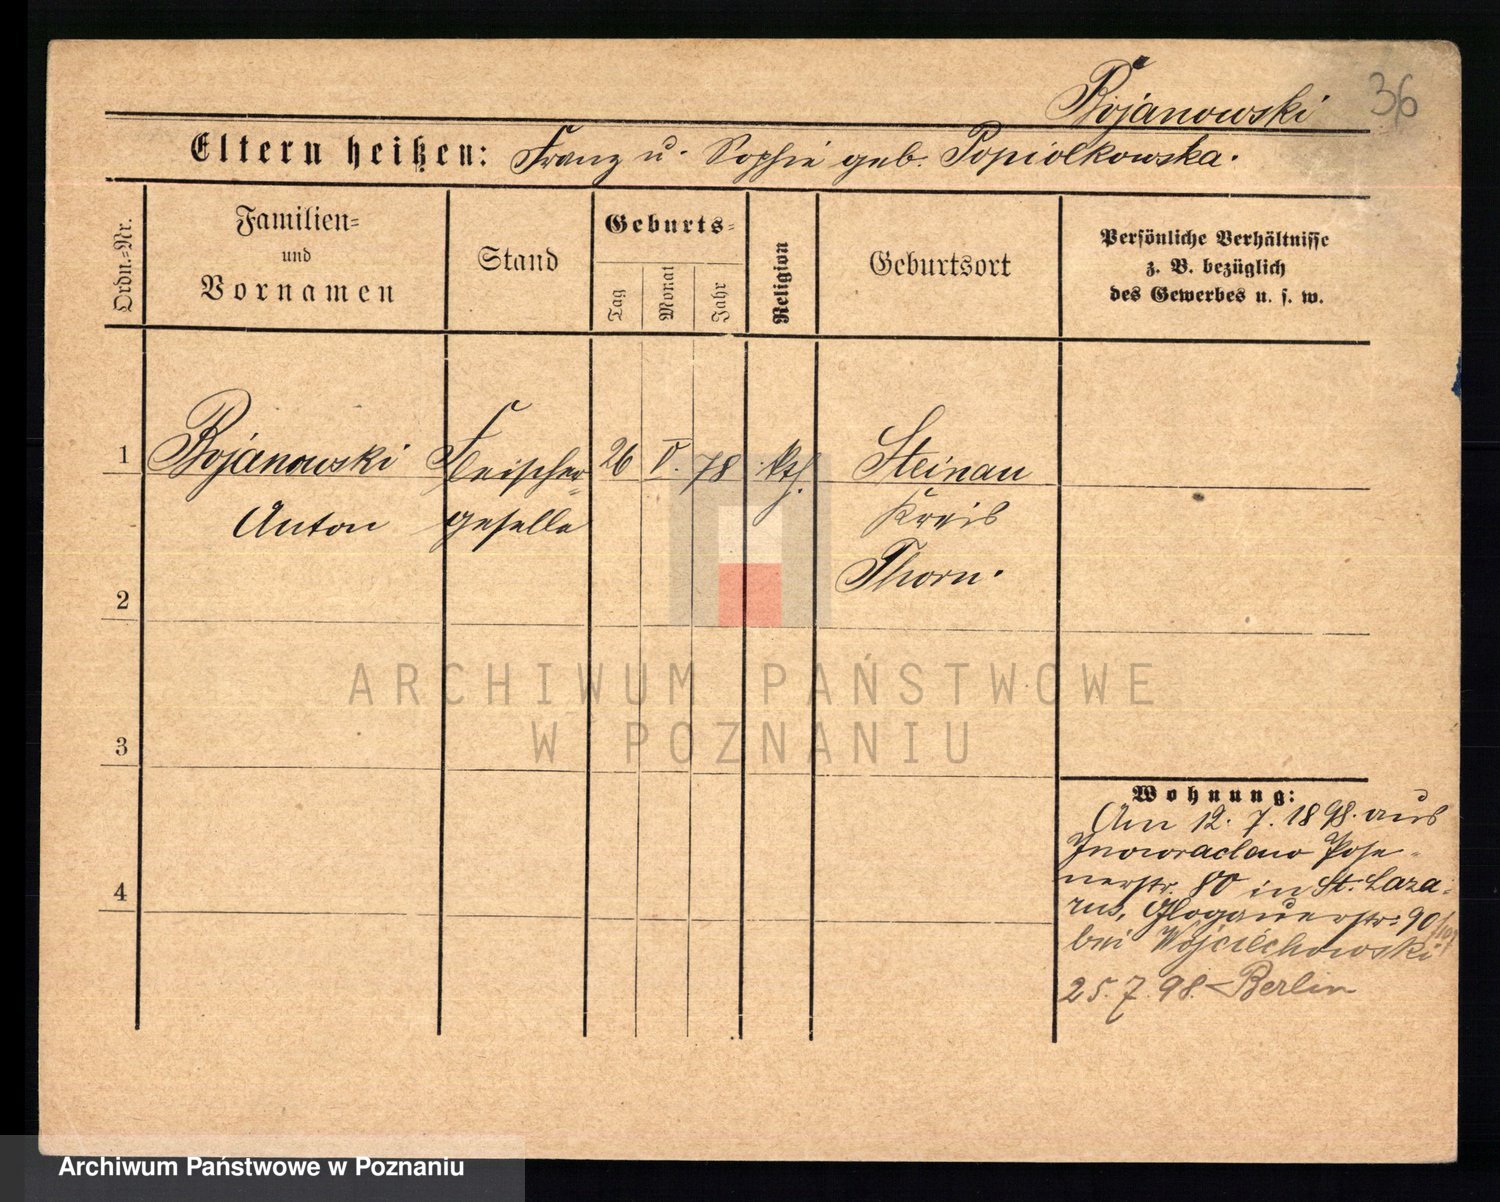 Bojanowski 36
Eltern heißen: Franz u. Sophie geb. Popiolkowska.
Ordn.=Nr.
Familien=
und
Vornamen
Stand
Geburts=
Tag
Monat
Jahr
Religion
Geburtsort
Persönliche Verhältnisse
z. B. bezüglich
des Gewerbes u. s. w.
1 Bojanowski Fleischer= 26 V. 78 kth. Steinau
Anton geselle Kreis
Thorn.
2
3
4
ARCHIWUM PAŃSTWOWE
W POZNANIU
Wohnung:
Am 12. 7. 1898. aus
Inowraclaw Pose=
nerstr. 80 in St. Laza=
rus, Glogauerstr. 90
bei Wojciechowski
25. 7. 98. Berlin
Archiwum Państwowe w Poznaniu